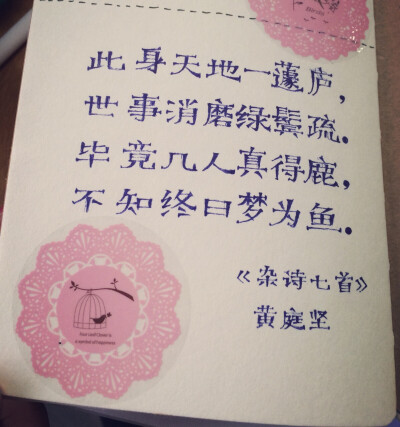 此身天地一蘧庐，
世事消磨绿鬓疏.
毕竟几人真得鹿，
不知终日梦为鱼.
《杂诗七首》
黄庭坚